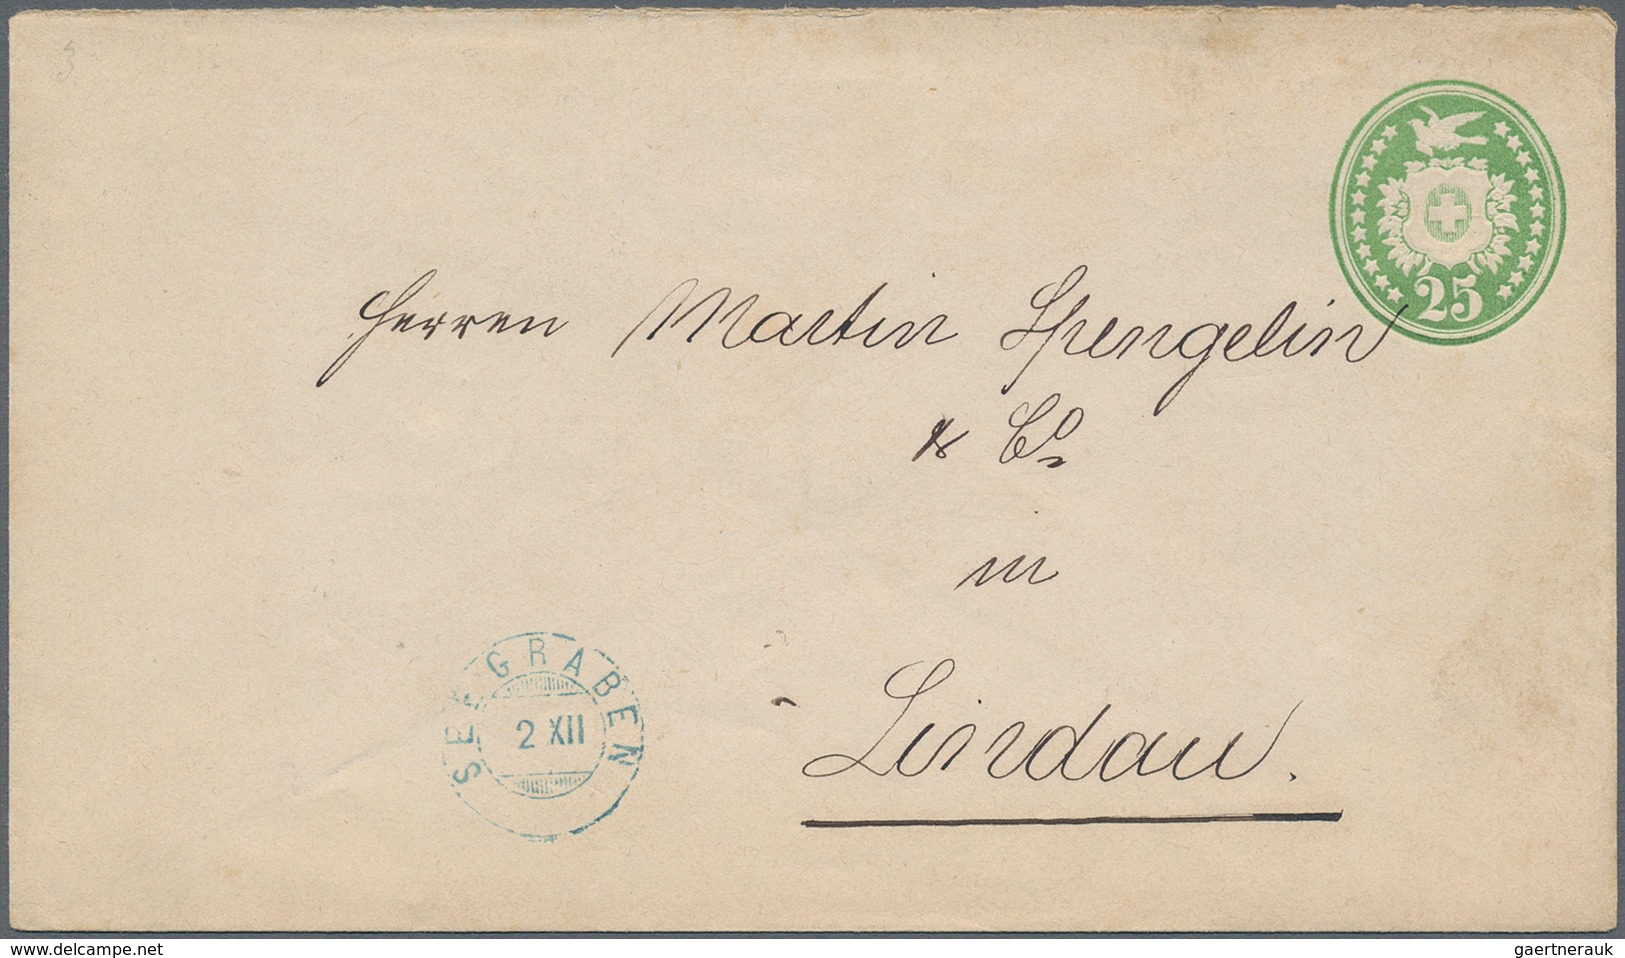 3
25
Herren Martin Spengelin
& Co
in
Lindau.
SEEGRABEN
2 XII
© www.delcampe.net
gaertnerauk